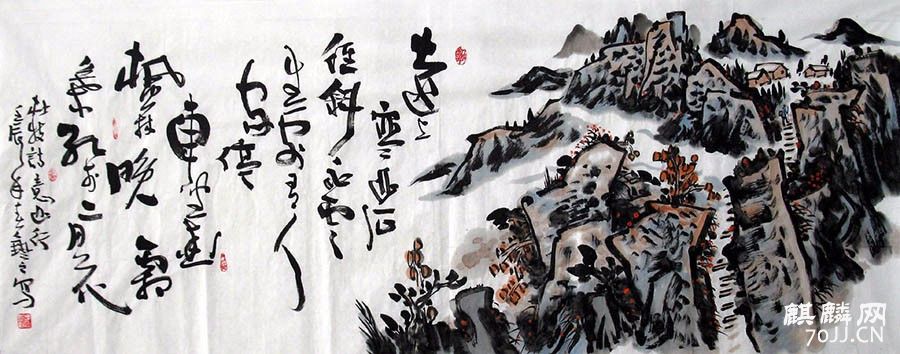 远上
寒山石
径斜白云
生处有人
家停
车坐爱
枫林晚霜
叶红于二月花
杜牧诗意山行
壬辰年
写
麒麟网
70JJ.CN